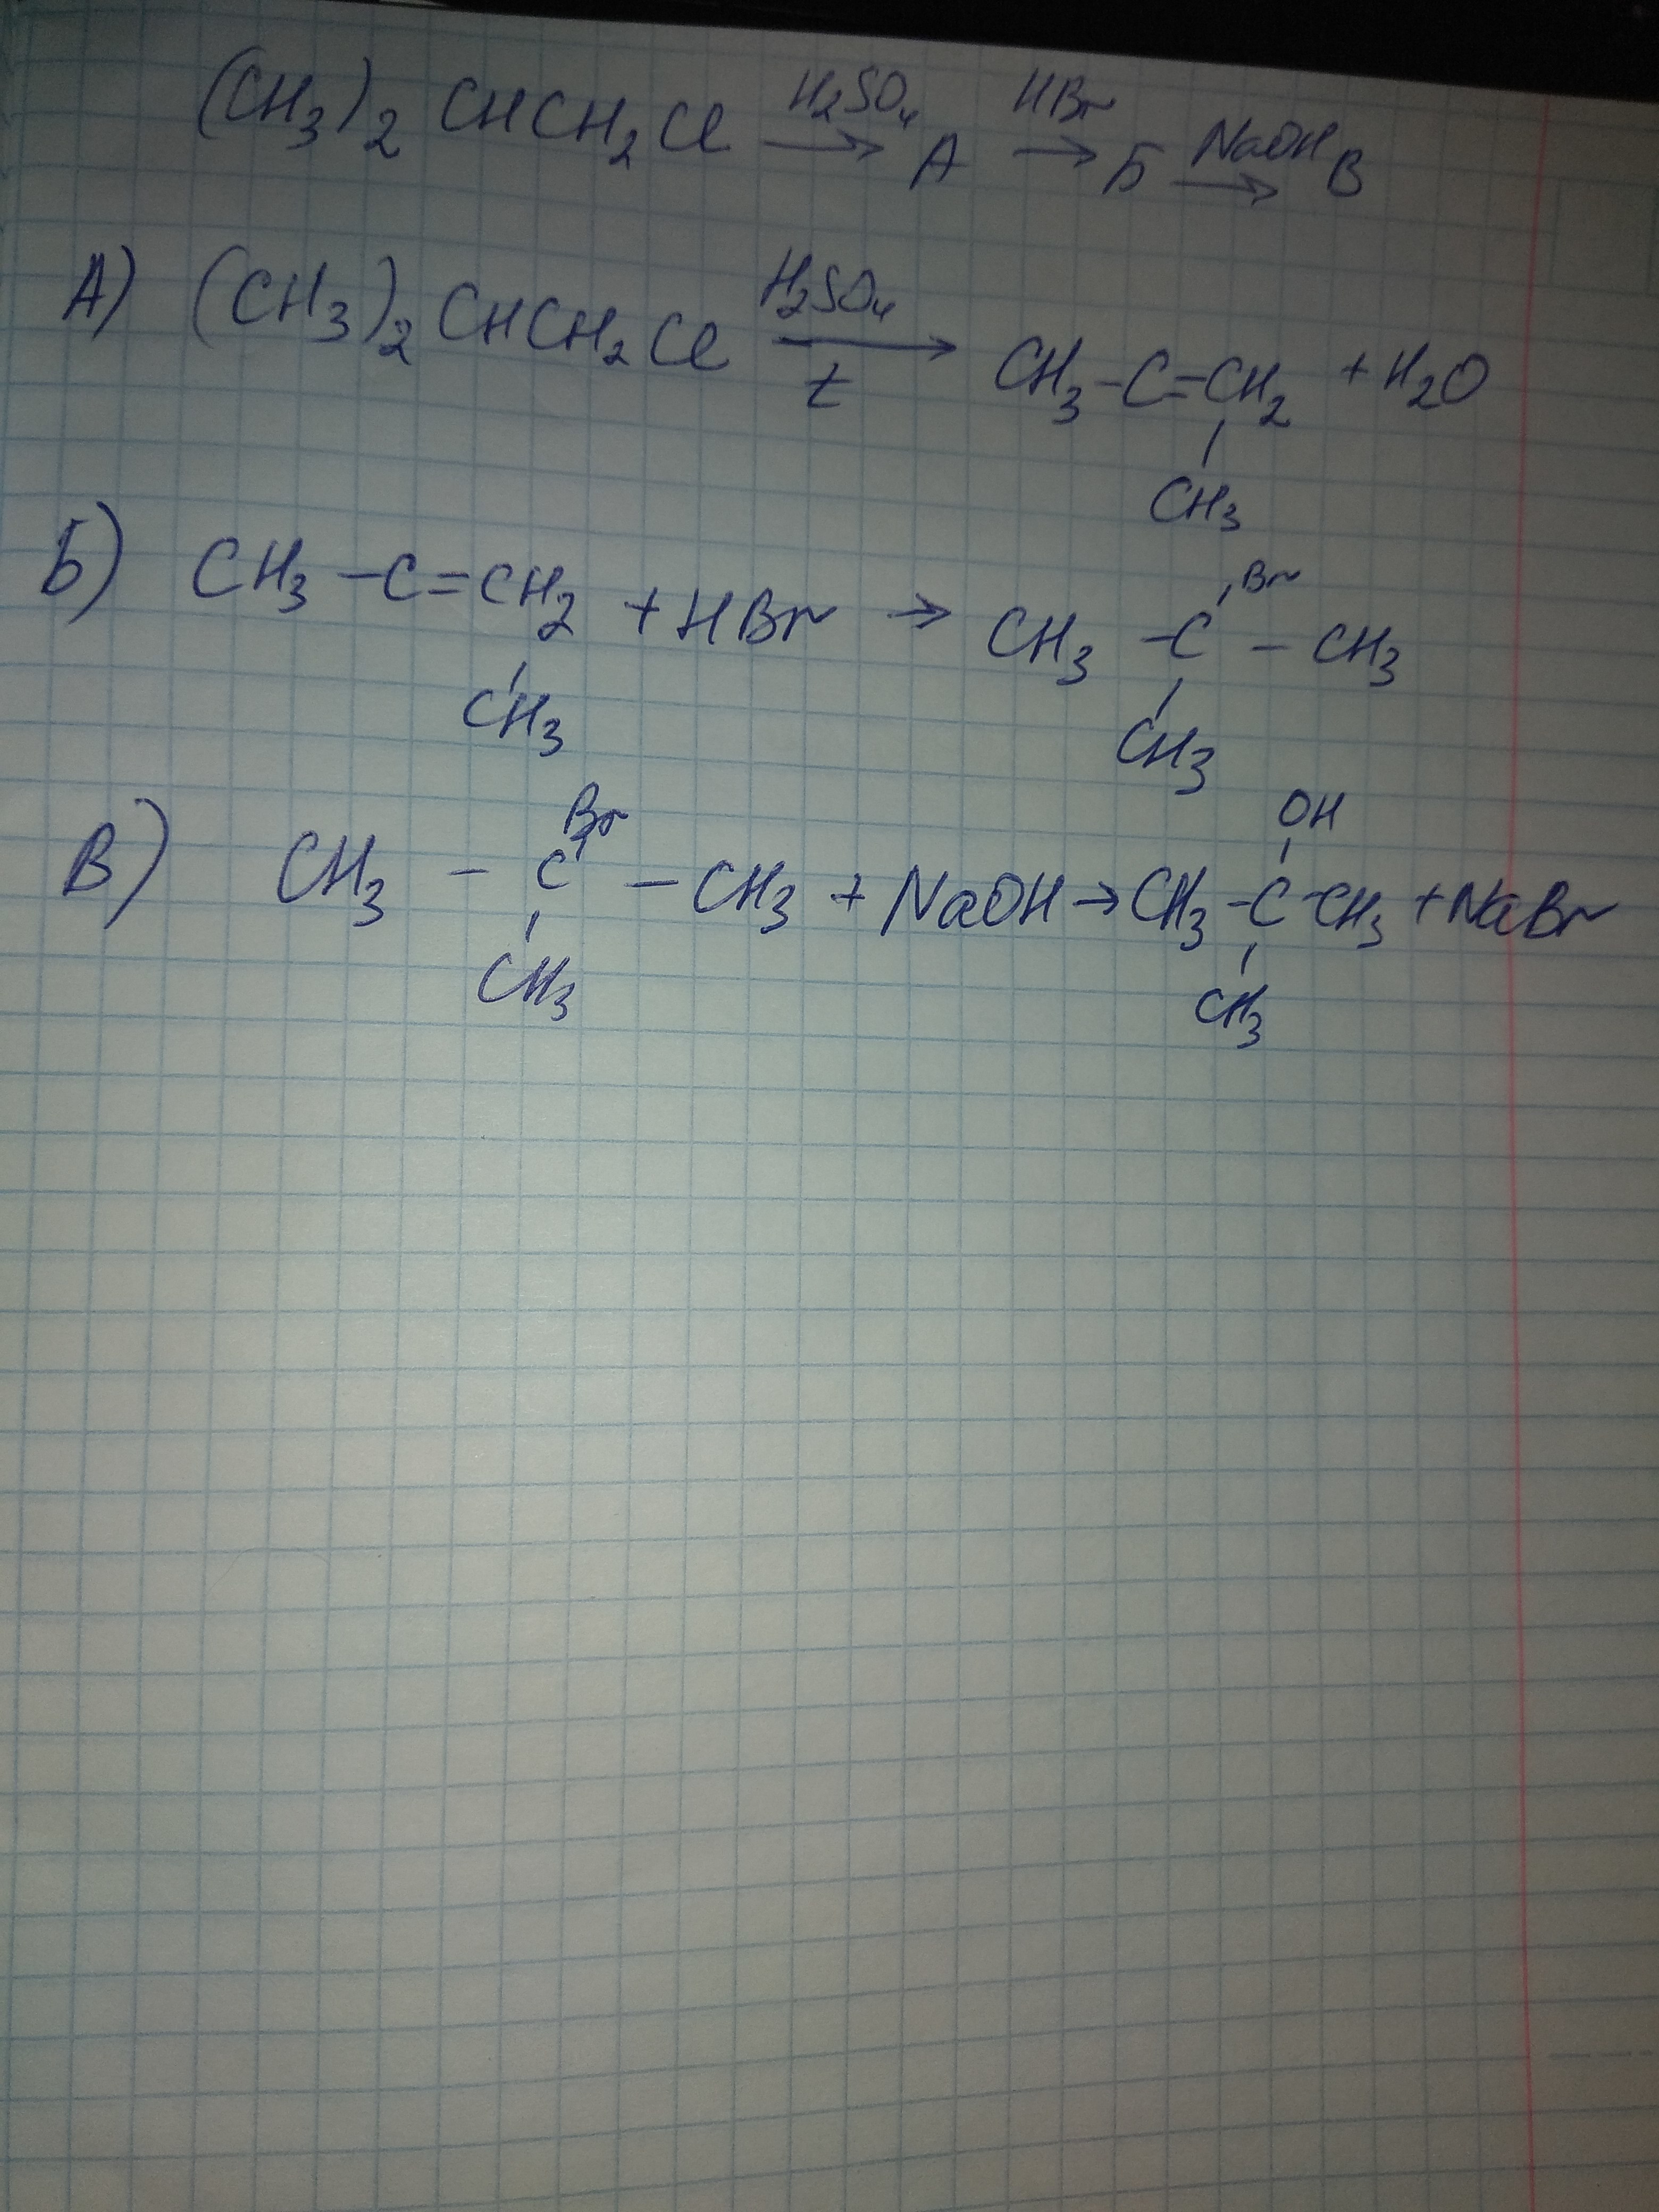 (CH₃)₂CHCH₂Cl —H₂SO₄→ А —HBr→ Б —NaOH→ В
А) (CH₃)₂CHCH₂Cl —H₂SO₄, t→ CH₃-C=CH₂ + H₂O
CH₃
Br
Б) CH₃-C=CH₂ + HBr → CH₃-C-CH₃
CH₃ CH₃
Br OH
В) CH₃-C-CH₃ + NaOH → CH₃-C-CH₃ + NaBr
CH₃ CH₃